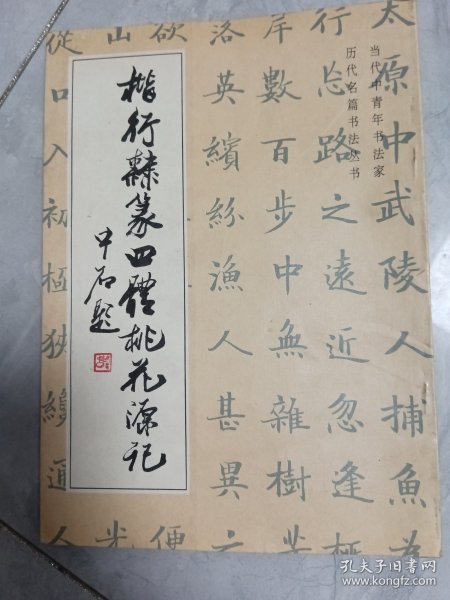 当代中青年书法家
历代名篇书法丛书
太原中武陵人捕魚為
行忘路之遠近忽逢
岸數百步中無雜樹
洛英繽紛漁人甚異之
欲便
山光
從口入初極狹纔通人
楷行隸篆四體桃花源记
中石题
孔夫子旧书网
www.kongfz.com